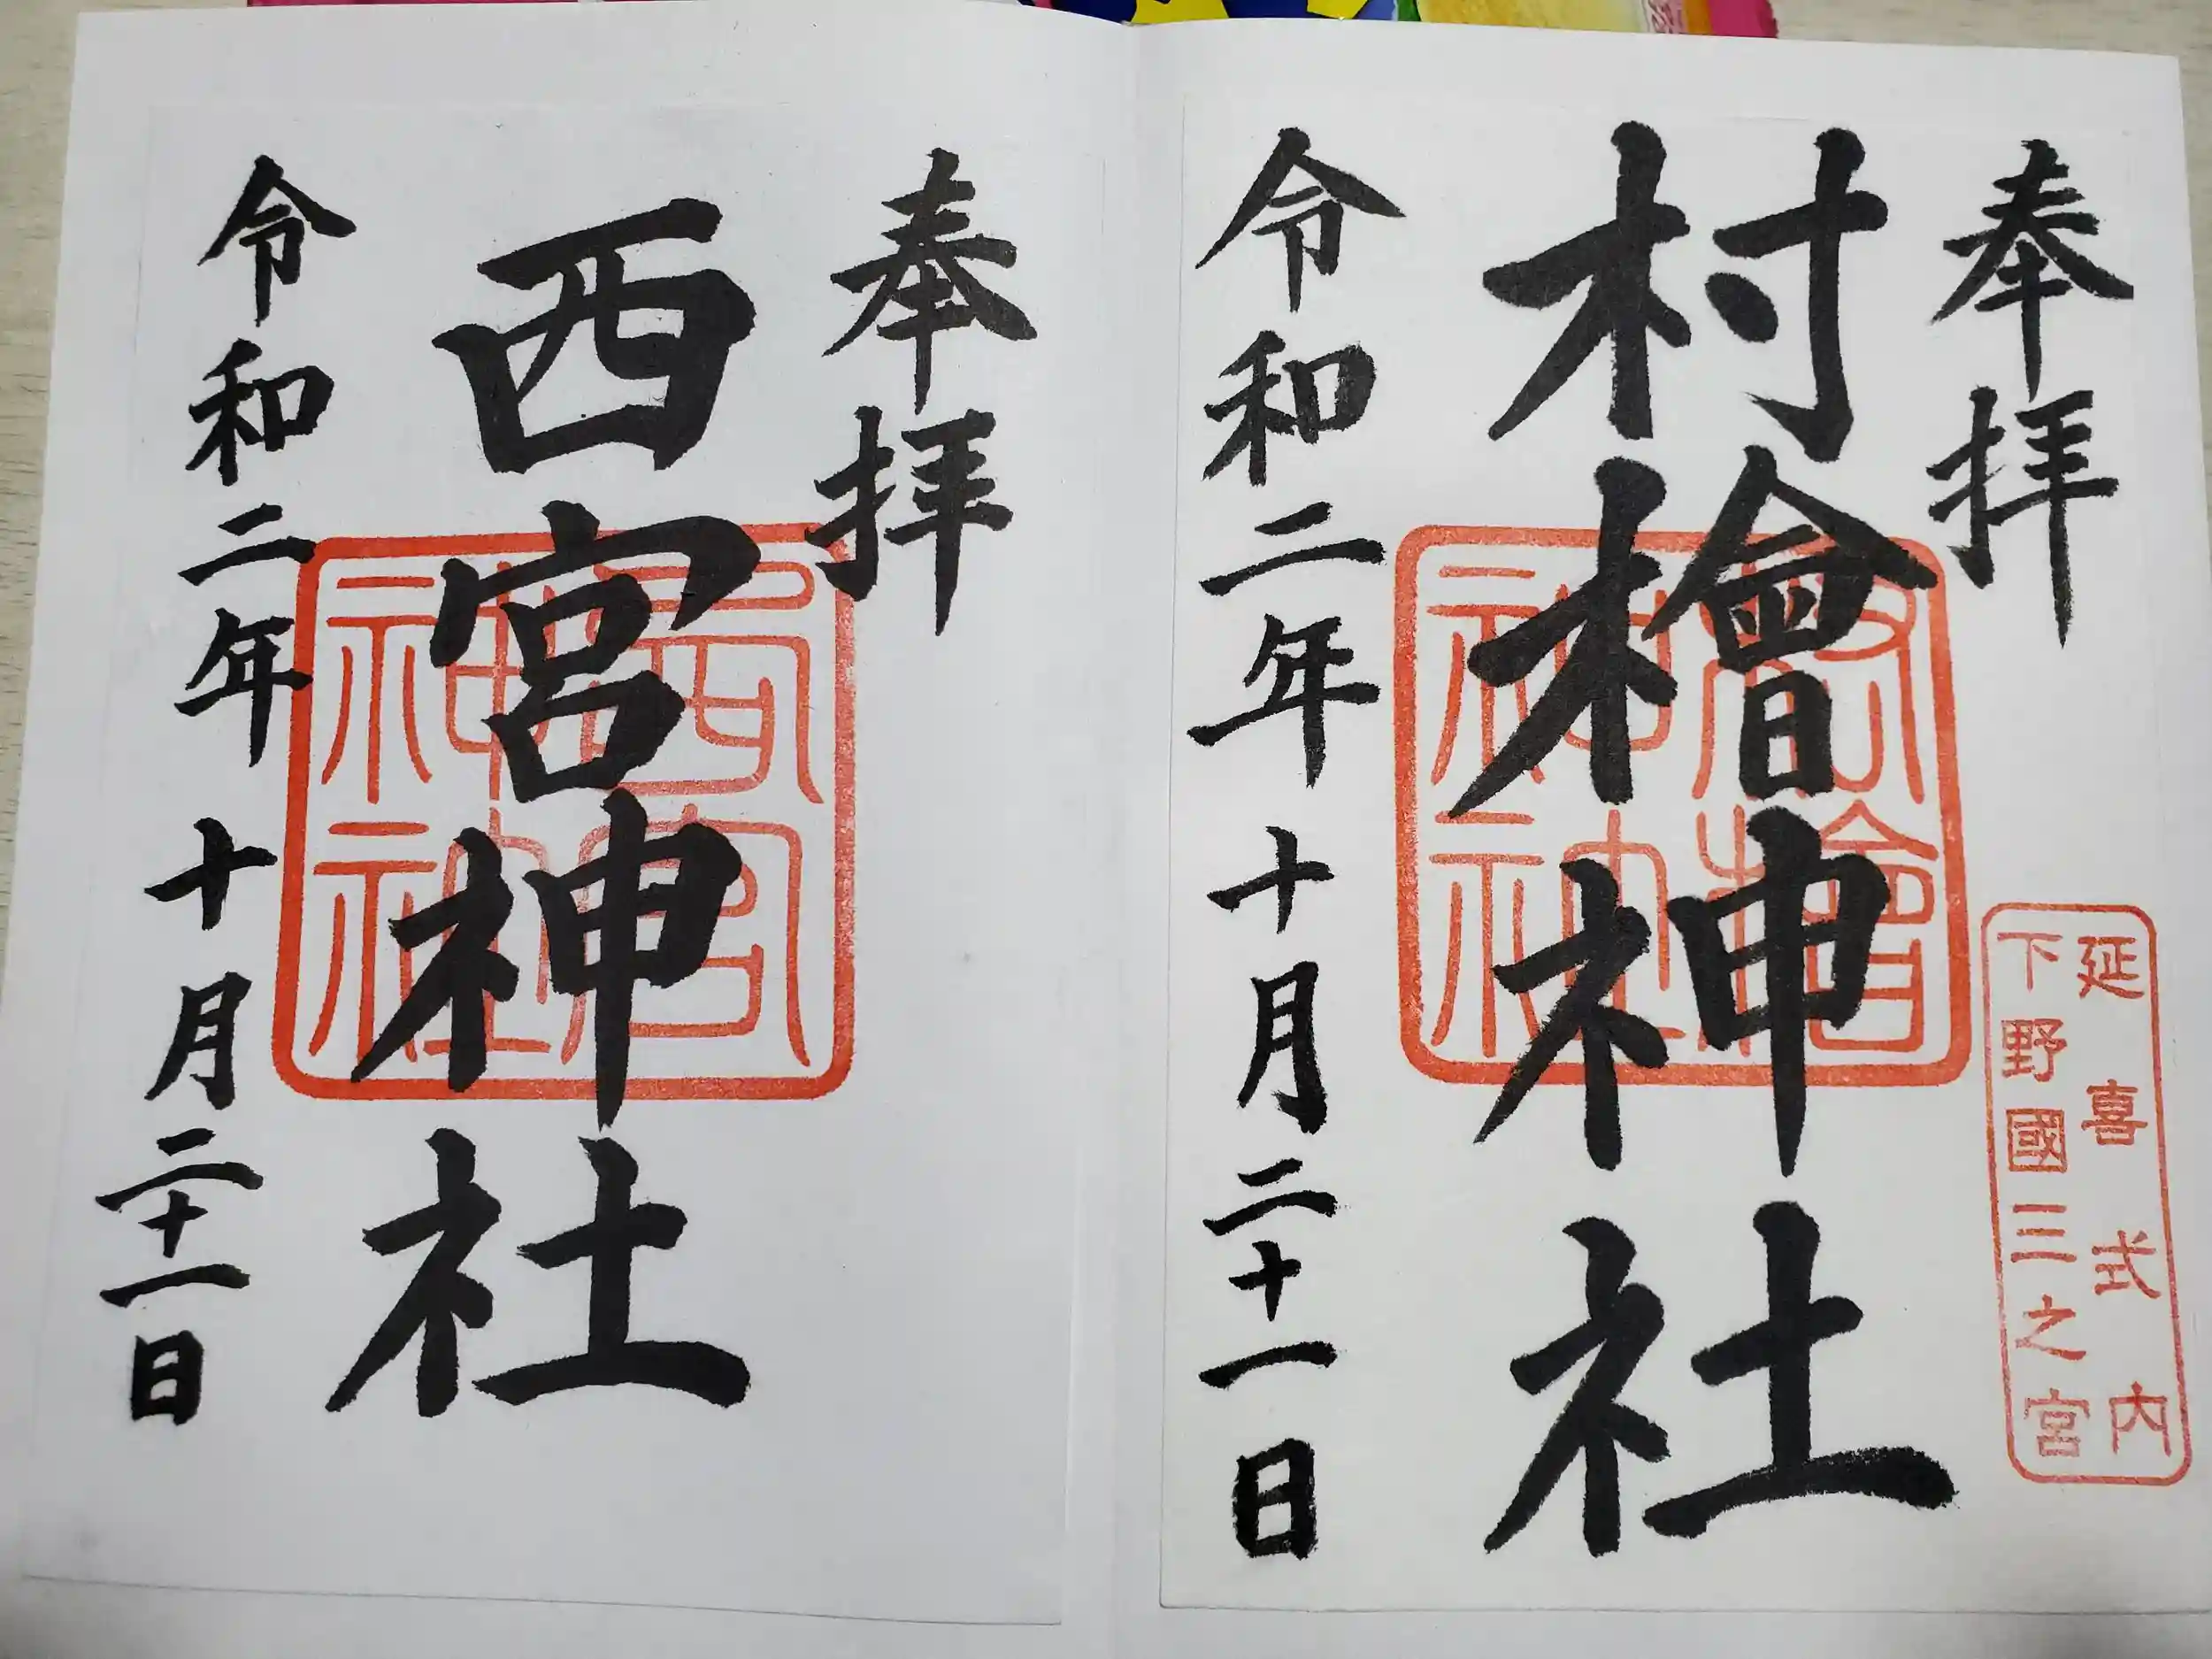 奉拝
延喜式内
下野國三之宮
村檜神社
村檜
神社
令和二年十月二十一日
奉拝
西宮神社
西宮
神社
令和二年十月二十一日